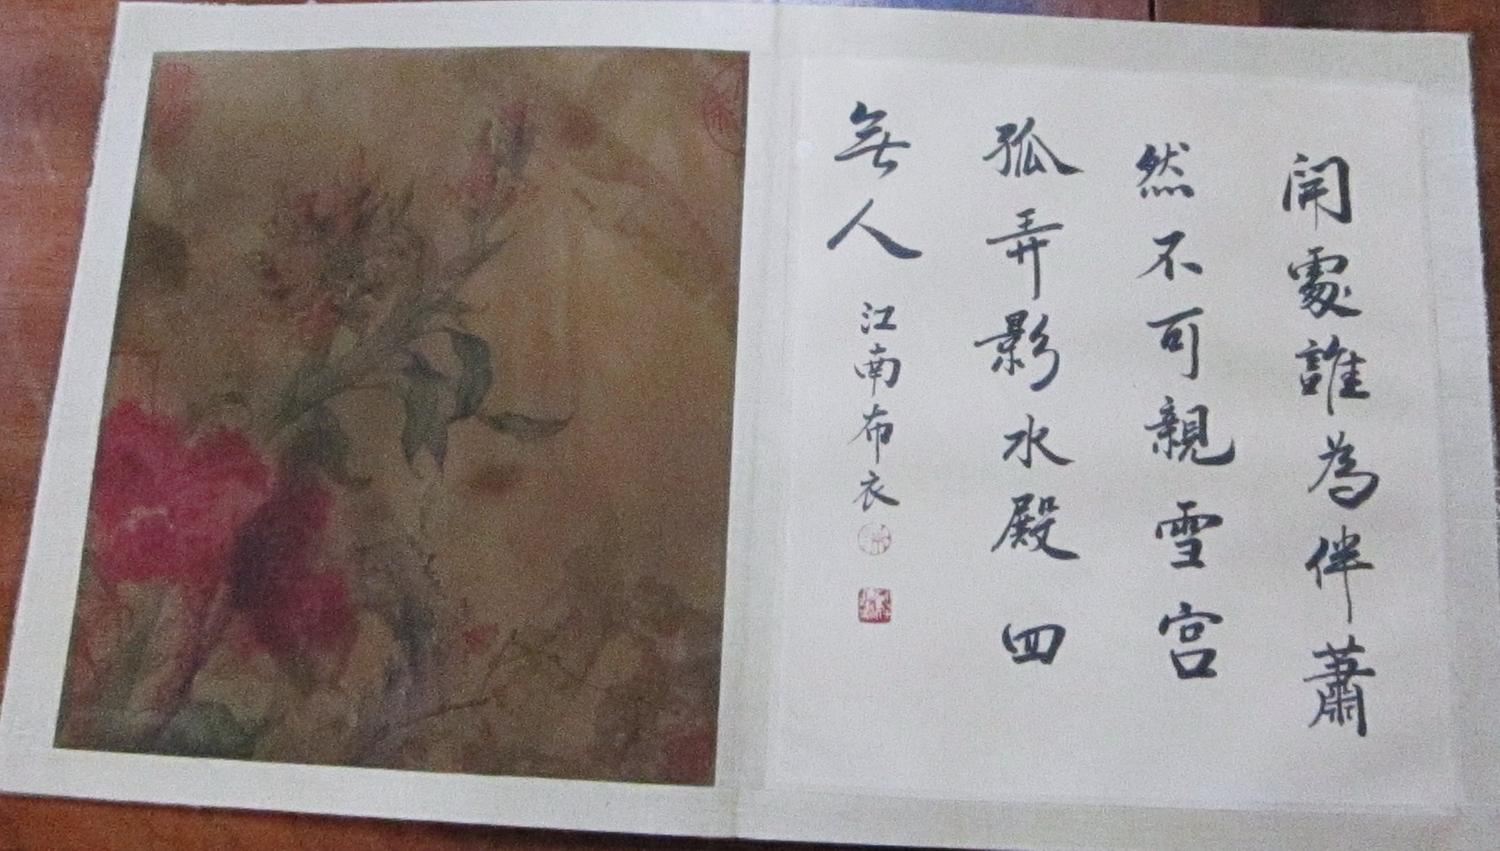 開處誰為伴蕭
然不可親雪宮
孤弄影水殿四
無人
江南布衣